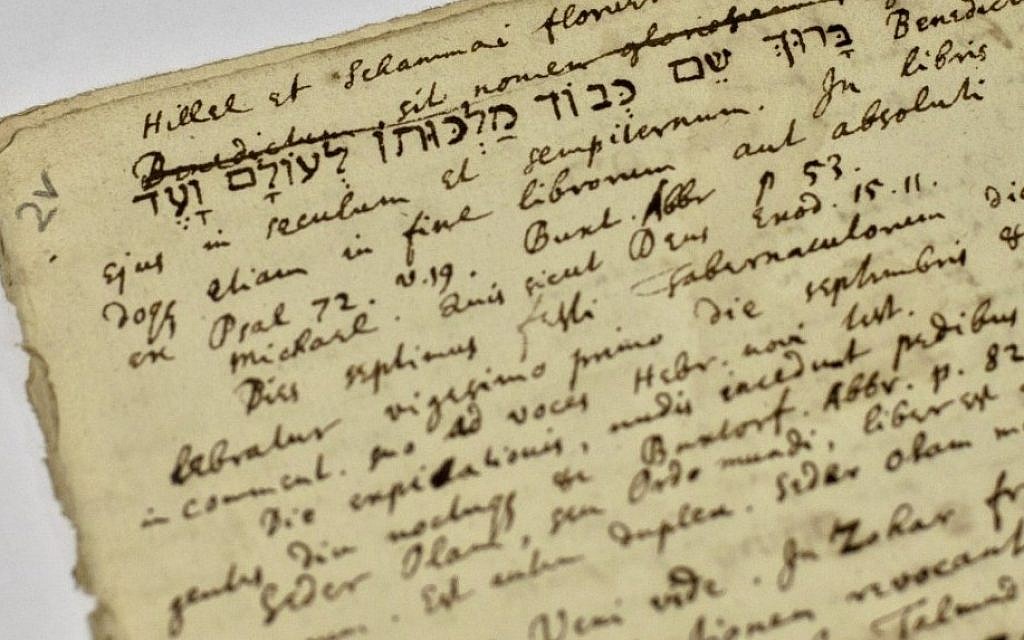 Hillel et Schammai floruer
Benedictum sit nomen gloriosum
בָּרוּךְ שֵׁם כְּבוֹד מַלְכוּתוֹ לְעוֹלָם וָעֶד Benedict
ejus in seculum et sempiternum. In libris
etiam in fine librorum aut absoluti
ex Psal 72. v. 19. Buxt. Abbr p 53.
Michael. Quis sicut Deus Exod. 15. 11.
Dies septimus festi Tabernaculorum die
lebratur vigesimo primo die septembris &
in comment. suo ad voces Hebr. novi test.
Die expiationis, nudis incedunt pedibus
gentes diu & Buxtorf. Abbr. p. 82
Seder Olam, seu Ordo mundi, liber est
Est autem duplex. Seder olam
Veni vide. In Zohar fr
revocant
Talmud
2v